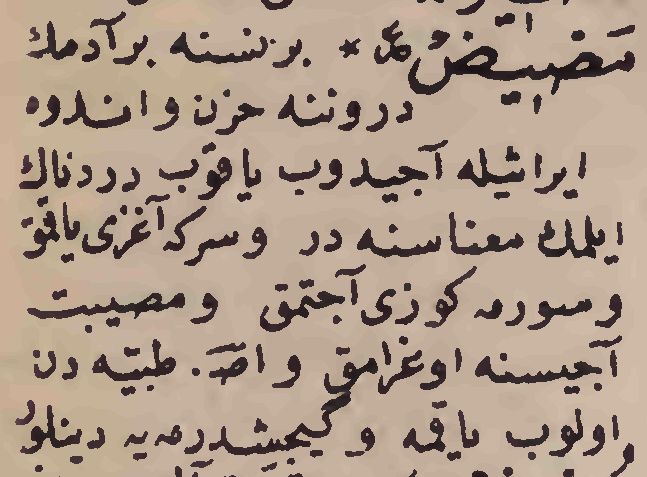 مَضِيضٌ ع * بر نسنه بر آدمك
دروننه حزن و اندوه
ايراثيله آجيدوب ياقوب دردناك
ايلمك معناسنه در وسركه آغزى ياقمق
وسورمه كوزى آجتمق ومصيبت
آجيسنه اوغرامق و اصَّ. طبيّه دن
اولوب ياقمه و گيجيشدرمه يه دينلور